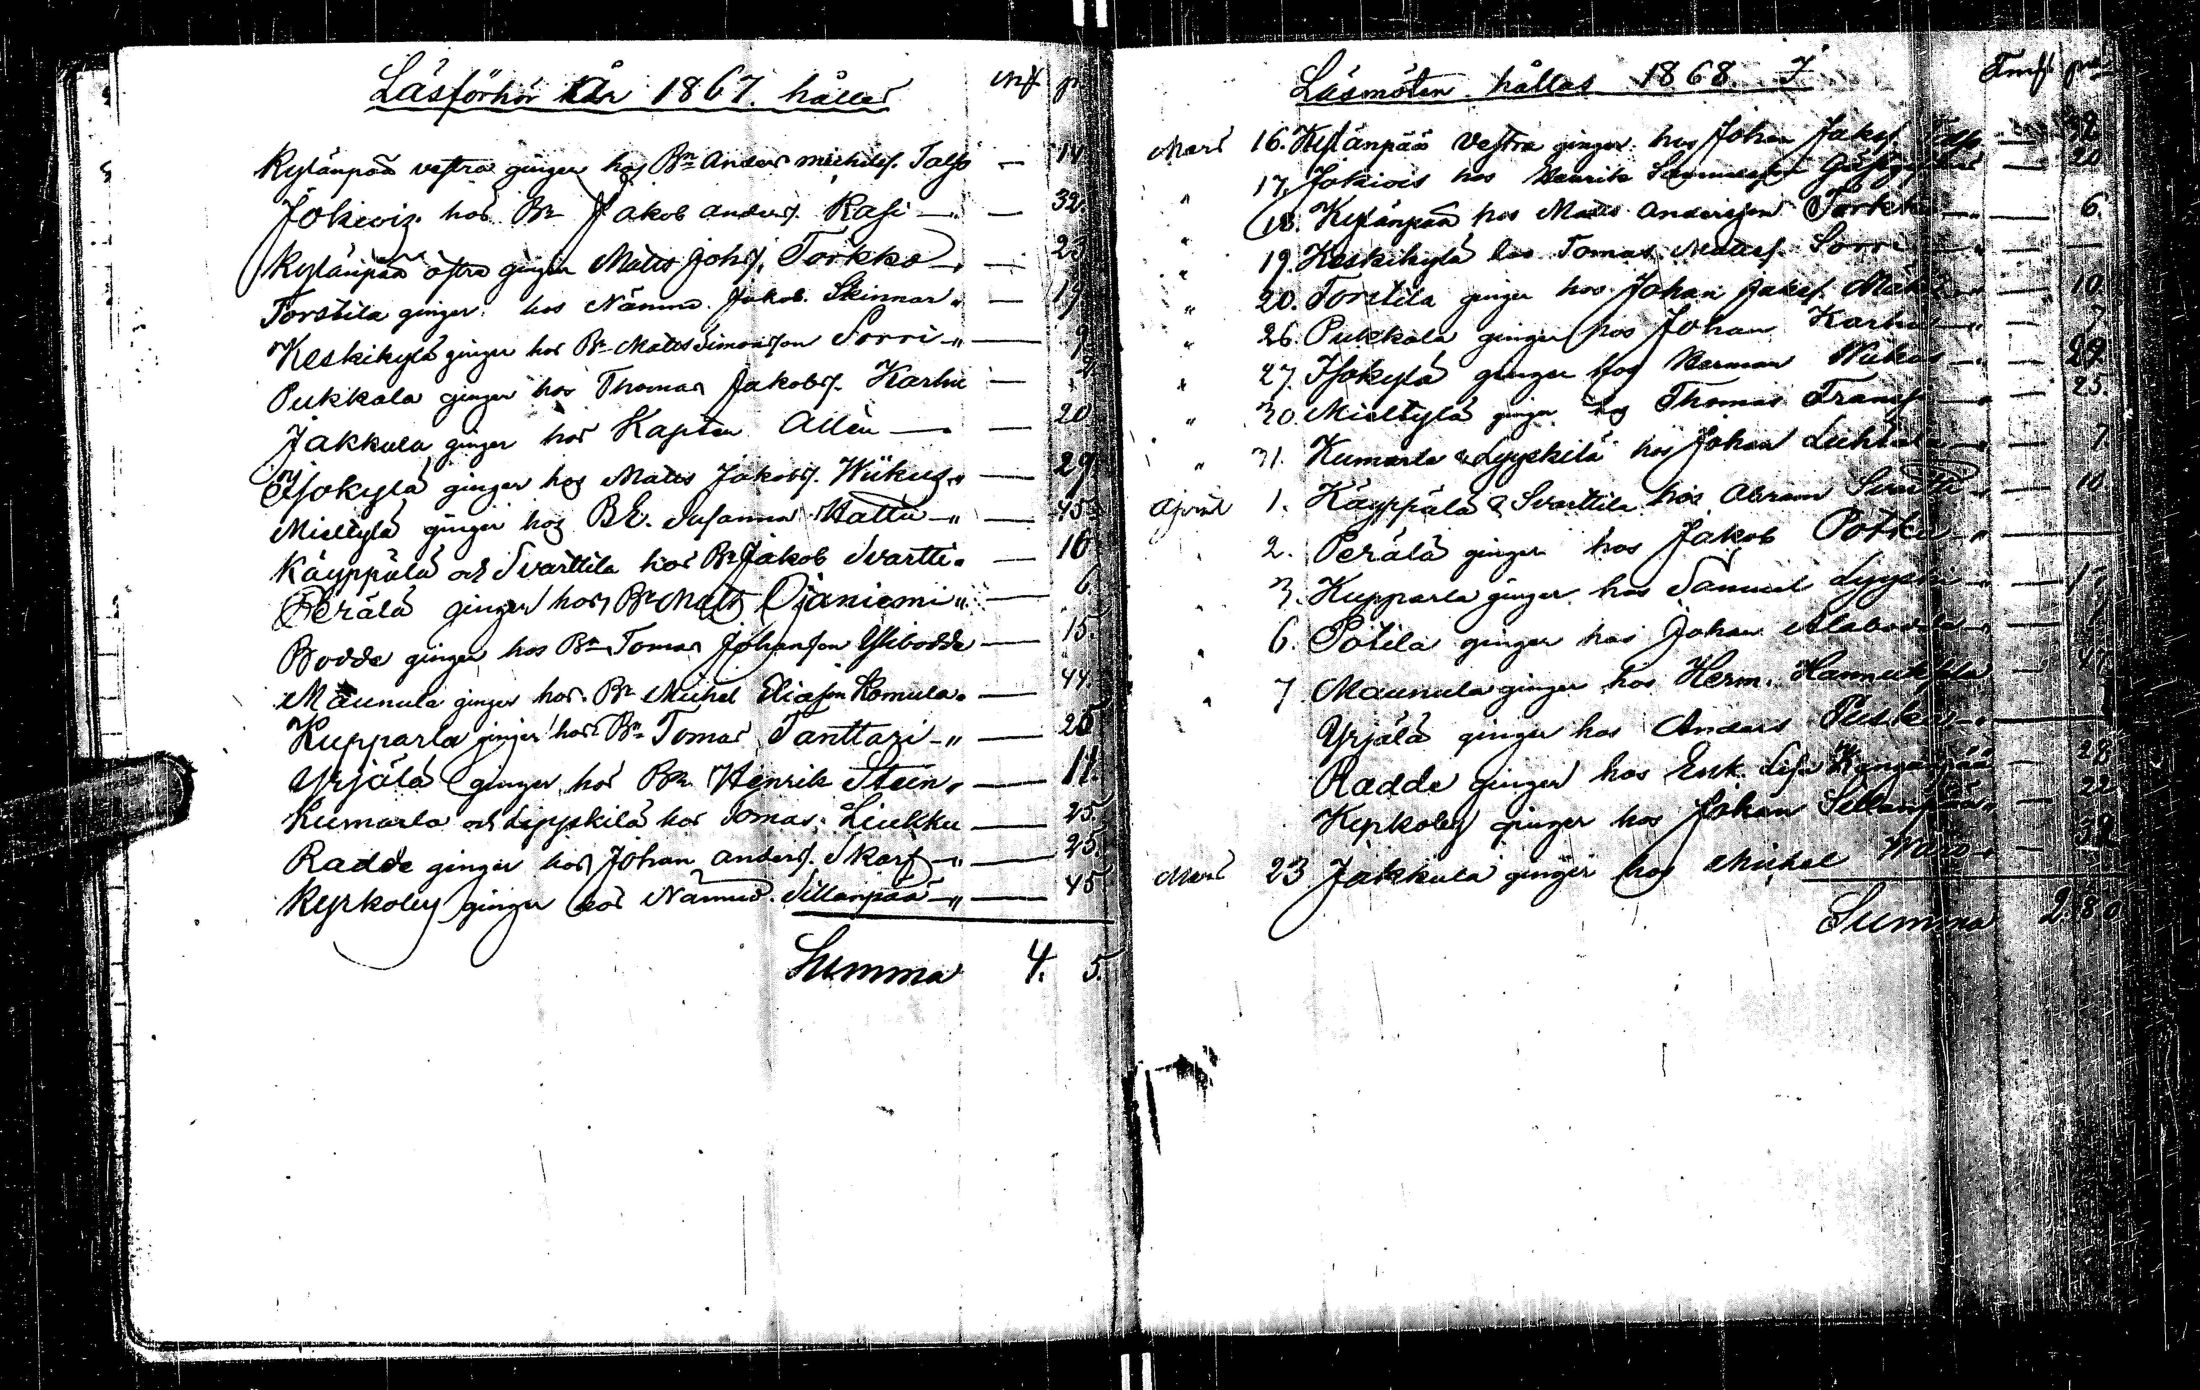 Läsförhör år 1867. hålles mk p.
Kylänpää vestra ginger hos Bn Anders Michels. Talso — 14
Jokiviz. hos Bn Jakob Anders. Kasi — 32.
Kylänpää östra ginger Matts Johs. Torkko — 23
Torstila ginger hos Nämnd. Jakob. Skinnar " — 19
Keskikylä ginger hos Bn Matts Simonsson Sorri " — 9.
Pukkala ginger hos Thomas Jakobs. Karhu — 2.
Jakkula ginger hos Kapten Allén — 20
Isokylä ginger hos Matts Jakobs. Wükus " — 29.
Mieltylä ginger hos BE. Susanna Hattu " — 45
Käyppälä och Svarttila hos Bn Jakob Svartti " — 10
Perälä ginger hos Bn Matts Ojaniemi " — 6
Bodde ginger hos Bn Tomas Johansson Ylibodde — 15.
Maunula ginger hos Bn Michel Eliasson Romula " — 44.
Kupparla ginger hos Bn Tomas Tanttari " — 25
Yrjälä ginger hos Bn Henrik Stein " — 11.
Kumarla och Lyyskilä hos Tomas Liukku — 25.
Radde ginger hos Johan Anders. Skarf " — 25.
Kyrkoby ginger hos Nämnd. Sillanpää " — 45
Summa 4. 5.
Läsmöten hållas 1868. Fmk pn
Mars 16. Kylänpää Vestra ginger hos Johan Jakos. — 32
" 17. Jokivis hos Henrik — 20
" 18. Kylänpää hos Matts Andersson Torkko " — 6.
" 19. Keskikylä hos Tomas Matts. Sorri " —
" 20. Torstila ginger hos Johan Jakos. — 10
" 26. Pukkala ginger hos Johan Karhu " — 7
" 27. Isokylä ginger hos Herman Wükus — 29.
" 30. Mieltylä ginger hos Thomas Transs — 25.
" 31. Kumarla & Lyyskilä hos Johan — 7
April 1. Käyppälä & Svarttila hos Abram Svartti " — 10
" 2. Perälä ginger hos Jakob Potka " —
" 3. Kupparla ginger hos Samuel Lyyski —
" 6. Potila ginger hos Johan Alabodda "
7 Maunula ginger hos Herm. Hannuksela —
Yrjälä ginger hos Anders Puska " —
Radde ginger hos Enk. Lisa Kangaspää 28
Kyrkoby ginger hos Johan Sillanpää " — 22
Mars 23 Jakkula ginger hos Michel — 32
Summa 2.80